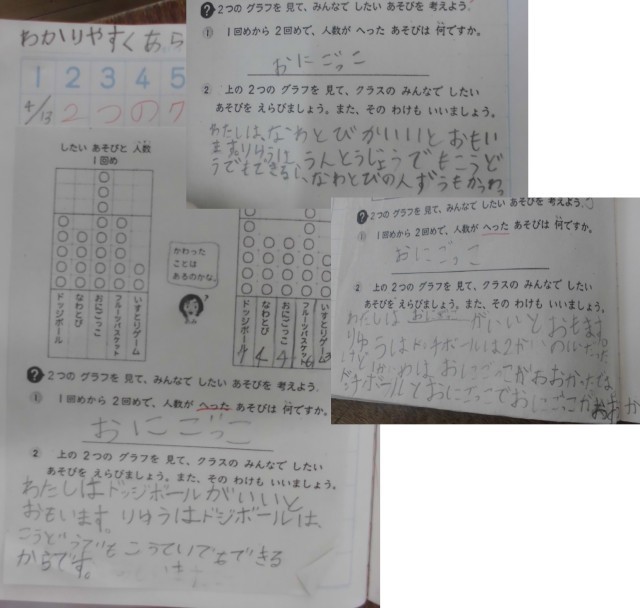 わかりやすく あら
1 2 3 4 5
4/13 2つの 7
したい あそびと 人数
1回め
ドッジボール
なわとび
おにごっこ
フルーツバスケット
いすとりゲーム
かわった
ことは
あるのかな。
ドッジボール
なわとび
おにごっこ
フルーツバスケット
いすとりゲーム
4 4
? 2つの グラフを 見て、みんなで したい あそびを 考えよう.
① 1回めから 2回めで、人数が へった あそびは 何ですか。
おにごっこ
2 上の 2つの グラフを 見て、クラスの みんなで したい
あそびを えらびましょう。また、その わけも いいましょう。
わたしはドッジボールがいいと
おもいます。りゆうはドジボールは、
こうどうでも こうていでもできる
からです。
? 2つの グラフを 見て、みんなで したい あそびを 考えよう.
① 1回めから 2回めで、人数が へった あそびは 何ですか。
おにごっこ
2 上の 2つの グラフを 見て、クラスの みんなで したい
あそびを えらびましょう。また、その わけも いいましょう。
わたしは、なわとびがいいとおもい
ますりゆうは、うんとうじょうでもこうど
うでもできるし、なわとびの人ずうもかわっ
? 2つの グラフを 見て、みんなで したい あそびを 考えよう.
① 1回めから 2回めで、人数が へった あそびは 何ですか。
おにごっこ
2 上の 2つの グラフを 見て、クラスの みんなで したい
あそびを えらびましょう。また、その わけも いいましょう。
わたしは おにごっこがいいとおもます。
りゅうはドッチボールは2かいの
おにごっこがおおかった
ドッチボールとおにごっこでおにごっこがおおか